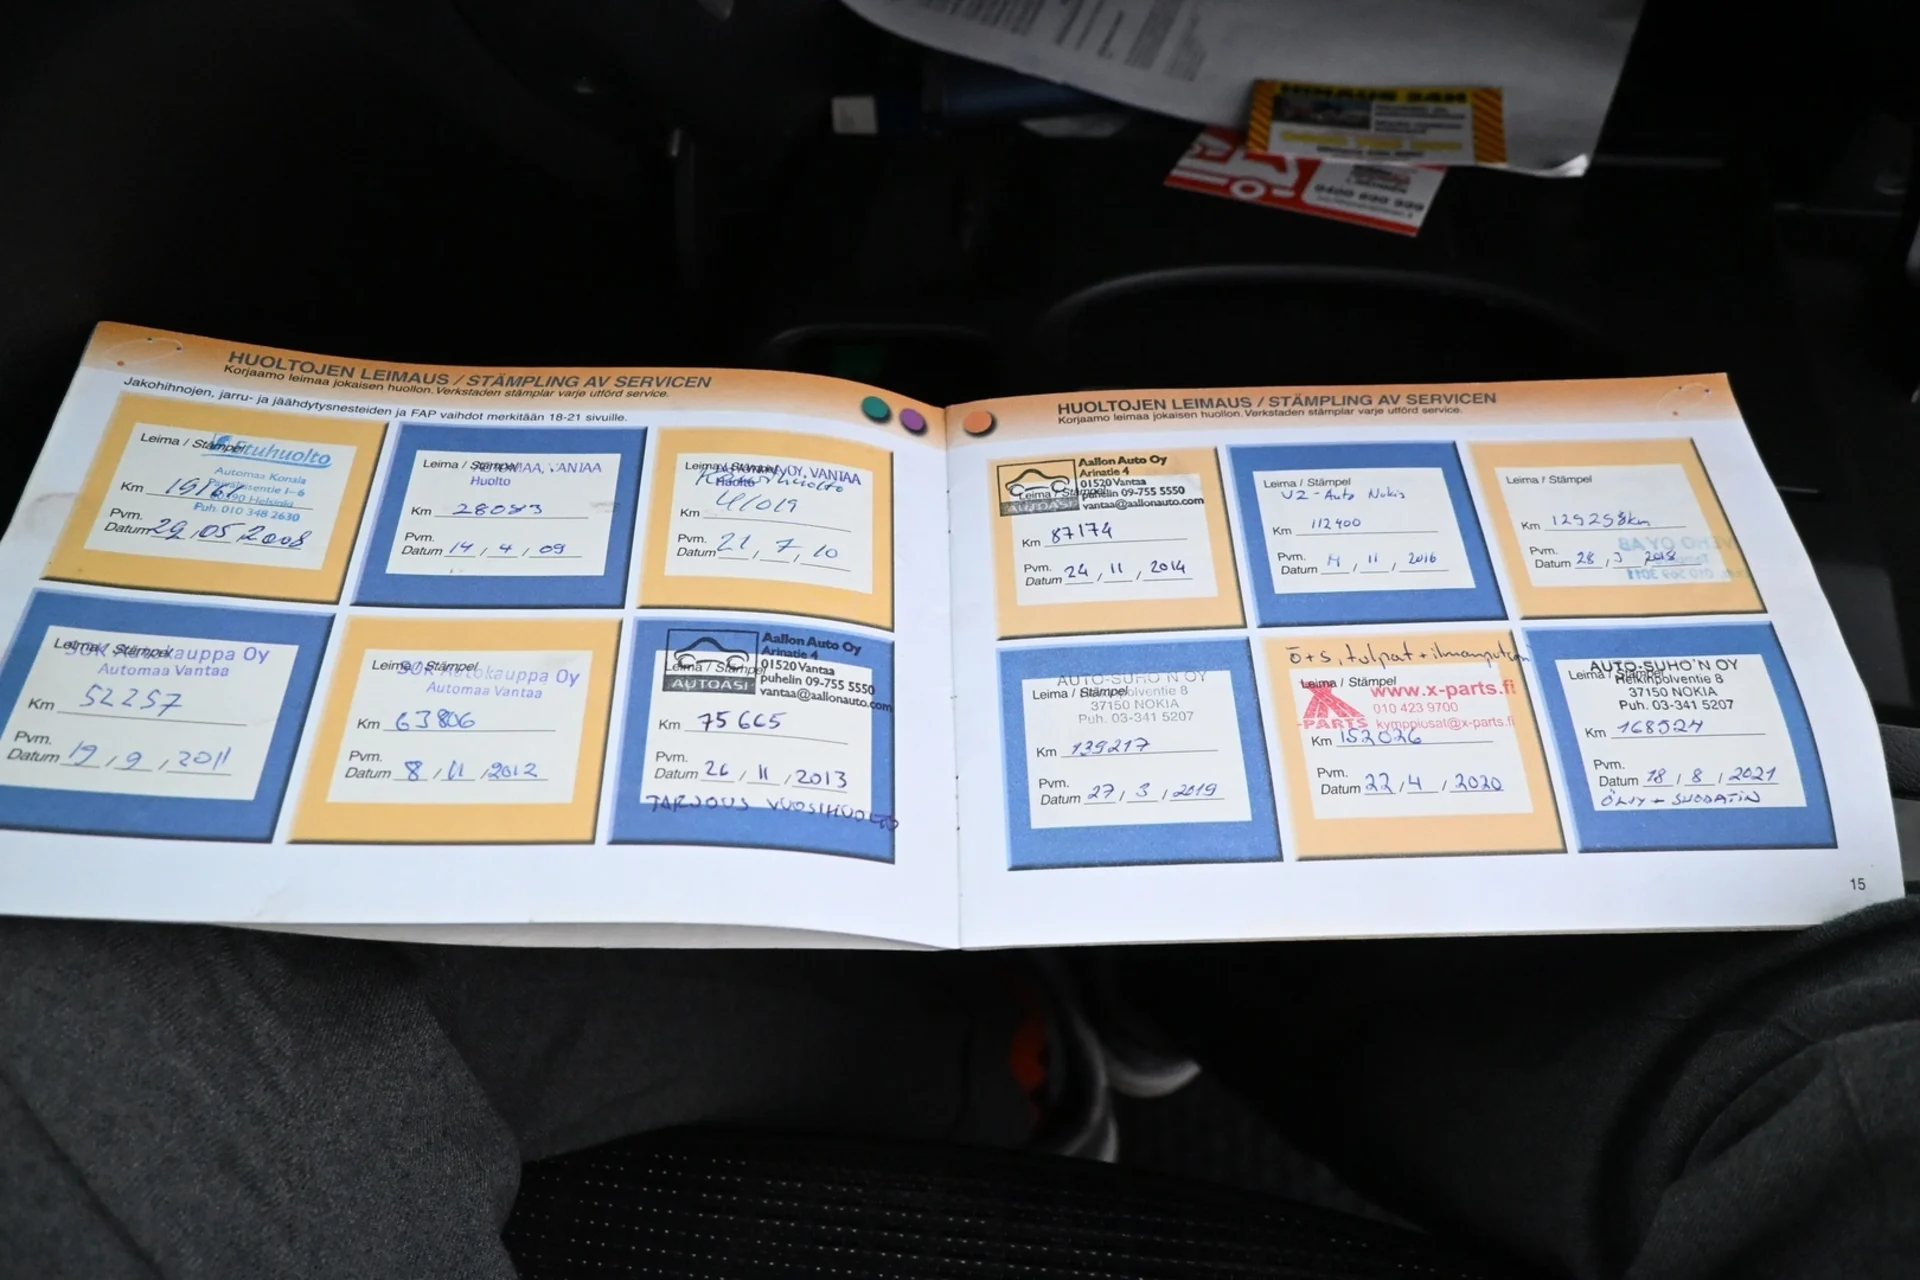 HUOLTOJEN LEIMAUS / STÄMPLING AV SERVICEN
Korjaamo leimaa jokaisen huollon. Verkstaden stämplar varje utförd service.
Jakohihnojen, jarru- ja jäähdytysnesteiden ja FAP vaihdot merkitään 18-21 sivuille.
Leima / Stämpel
Automaa Konala
Helsinki
Puh. 010 348 2630
Km
Pvm.
Datum 29 , 05 , 2008
Leima / Stämpel VANTAA
Huolto
Km 28083
Pvm.
Datum 14 , 4 , 09
Leima / Stämpel OY, VANTAA
Huolto
41019
Km
Pvm.
Datum 21 , 7 , 10
Leima / Stämpel
SOK Autokauppa Oy
Automaa Vantaa
Km 52257
Pvm.
Datum 19 , 9 , 2011
Leima / Stämpel
SOK Autokauppa Oy
Automaa Vantaa
Km 63806
Pvm.
Datum 8 , 11 , 2012
Leima / Stämpel
AUTOASI
Aallon Auto Oy
Arinatie 4
01520 Vantaa
puhelin 09-755 5550
vantaa@aallonauto.com
Km 75665
Pvm.
Datum 26 , 11 , 2013
TARJOUS VUOSIHUOLTO
HUOLTOJEN LEIMAUS / STÄMPLING AV SERVICEN
Korjaamo leimaa jokaisen huollon. Verkstaden stämplar varje utförd service.
Leima / Stämpel
AUTOASI
Aallon Auto Oy
Arinatie 4
01520 Vantaa
puhelin 09-755 5550
vantaa@aallonauto.com
Km 87174
Pvm.
Datum 24 , 11 , 2014
Leima / Stämpel
V2-Auto Nokia
Km 112400
Pvm.
Datum 14 , 11 , 2016
Leima / Stämpel
Km 129258km
Pvm.
Datum 28 , 3 , 2018
AUTO-SUHO'N OY
Leima / Stämpel
37150 NOKIA
Puh. 03-341 5207
Km 139217
Pvm.
Datum 27 , 3 , 2019
ö+s, tulpat + ilmanputson
Leima / Stämpel
X-PARTS
www.x-parts.fi
010 423 9700
kymppiosat@x-parts.fi
Km 152026
Pvm.
Datum 22 , 4 , 2020
AUTO-SUHO'N OY
Leima / Stämpel
37150 NOKIA
Puh. 03-341 5207
Km 168524
Pvm.
Datum 18 , 8 , 2021
ÖLJY + SUODATIN
15